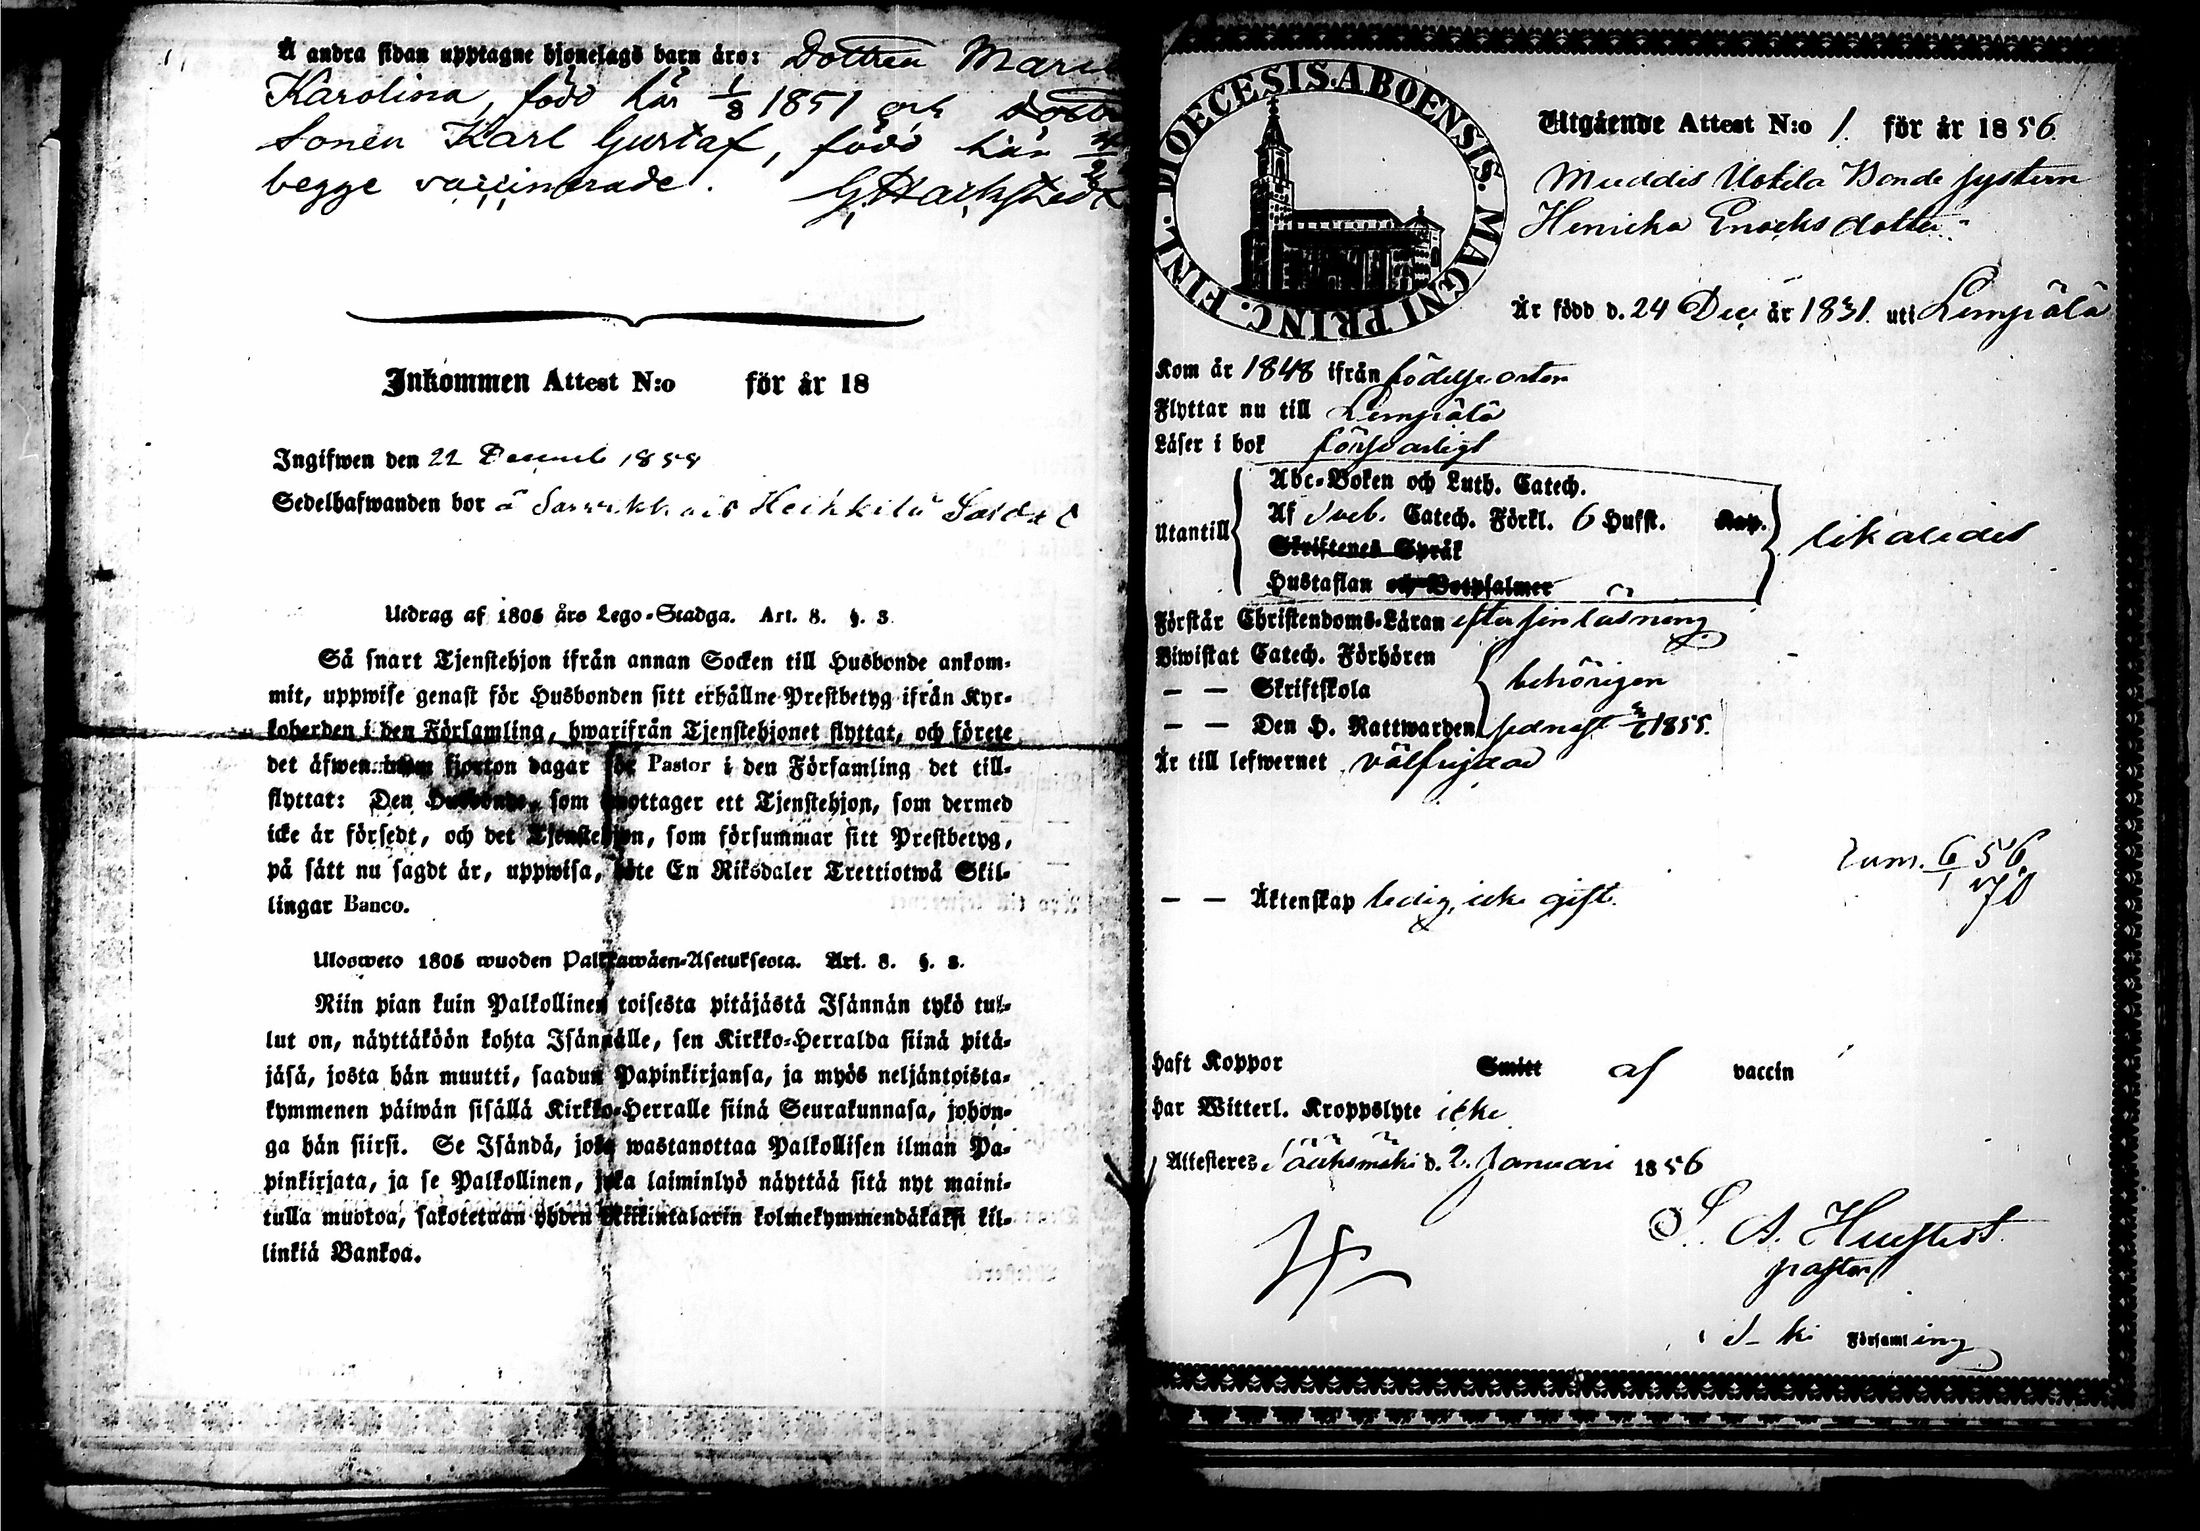 Å andra sidan upptagne hjonelags barn äro: Dottren Maria
Karolina, född här 1/8 1851 och
Sonen Karl Gustaf, född här
begge vaccinerade.
Inkommen Attest N:o för år 18
Ingifwen den 22 Decemb 1858
Sedelhafwanden bor å Heikkilä
Utdrag af 1805 års Lego-Stadga. Art. 8. §. 3.
Så snart Tjenstehjon ifrån annan Socken till Husbonde ankom-
mit, uppwise genast för Husbonden sitt erhållne Prestbetyg ifrån Kyr-
koherden i den Församling, hwarifrån Tjenstehjonet flyttat, och förete
det äfwen inom fjorton dagar för Pastor i den Församling det till-
flyttat: Den Husbonde, som emottager ett Tjenstehjon, som dermed
icke är försedt, och det Tjenstehjon, som försummar sitt Prestbetyg,
på sätt nu sagdt är, uppwisa, böte En Riksdaler Trettiotwå Skil-
lingar Banco.
Ulosweto 1805 wuoden Palkkawäen-Asetuksesta. Art. 8. §. 3.
Niin pian kuin Palkollinen toisesta pitäjästä Isännän tykö tul-
lut on, näyttäköön kohta Isännälle, sen Kirkko-Herralda siinä pitä-
jäsä, josta hän muutti, saadun Papinkirjansa, ja myös neljäntoista-
kymmenen päiwän sisällä Kirkko-Herralle siinä Seurakunnasa, johon-
ga hän siirsi. Se Isändä, joka wastanottaa Palkollisen ilman Pa-
pinkirjata, ja se Palkollinen, joka laiminlyö näyttää sitä nyt maini-
tulla muotoa, sakotetaan yhden Riikintalarin kolmekymmendäkaksi kil-
linkiä Bankoa.
DIOECESIS. ABOENSIS. MAGNI PRINC. FINL.
Utgående Attest N:o 1. för år 1856
Muddis Uotila Bonde systern
Henrika Enochsdotter
Är född d. 24 Dec. år 1831. uti Lempälä
Kom år 1848 ifrån födelseorten
Flyttar nu till Lempälä
Läser i bok försvarligt
Abc-Boken och Luth. Catech.
Utantill Af Sveb. Catech. Förkl. 6 Hufst. Kap. likaledes
Skriftenes Språk
Hustaflan och Botpsalmer
Förstår Christendoms-Läran efter sin läsning
Biwistat Catech. Förhören
— — Skriftskola behörigen
— — Den H. Nattwarden sednast 1855.
Är till lefwernet välfrejdad
6/1 56
— — Äktenskap ledig, icke gift.
Haft Koppor Smitt af vaccin
Har Witterl. Kroppslyte icke
Attesteres Sääksmäki d. 2 Januari 1856
pastor
i S-ki Församling